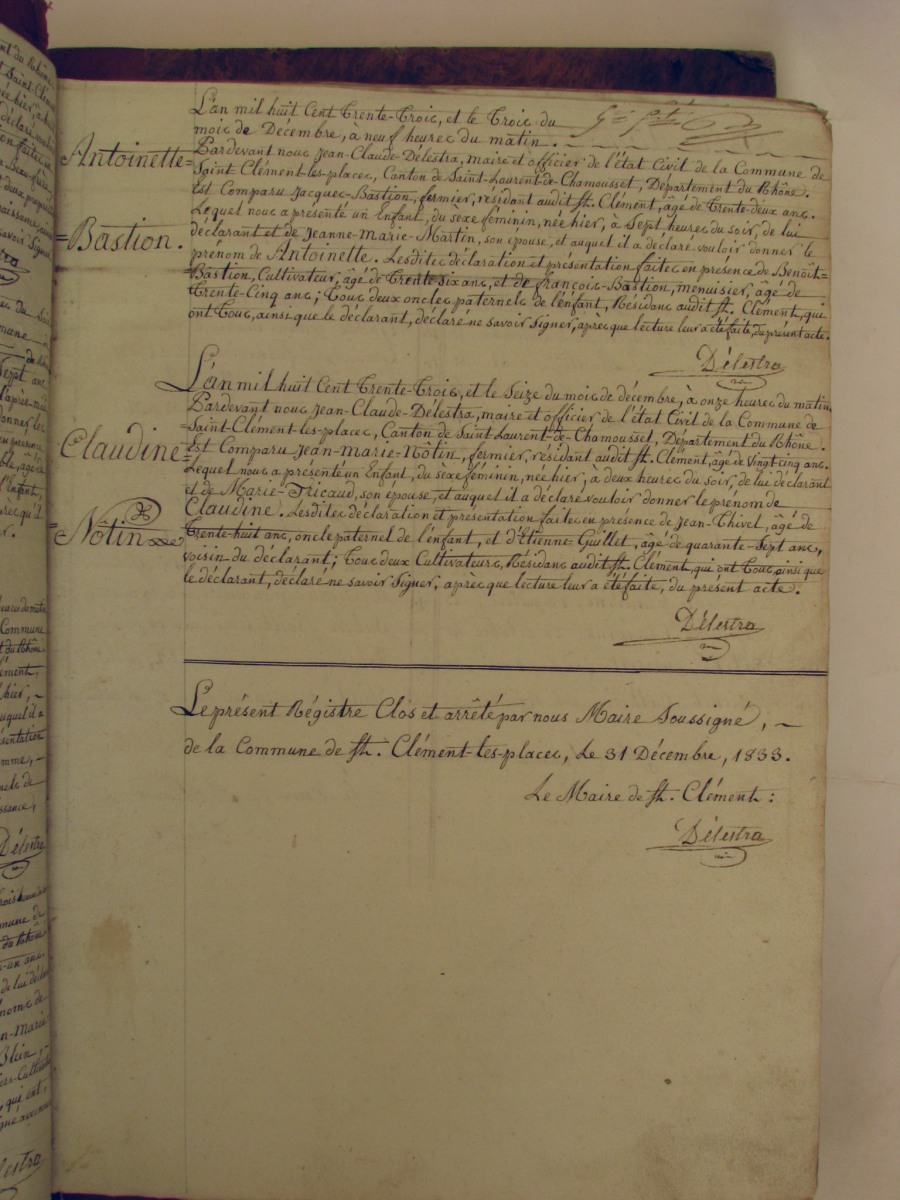 L'an mil huit Cent Trente-Trois, et le Trois du
mois de Décembre, à neuf heures du matin.
Antoinette=
Pardevant nous Jean-Claude-Délestra, maire et officier de l'état Civil de la Commune de
Saint Clément-les-places, Canton de Saint-Laurent-de-Chamousset, Département du Rhône.
Est Comparu Jacques-Bastion, fermier, résidant audit St. Clément, âgé de Trente-deux ans.
Lequel nous a présenté un Enfant, du sèxe féminin, née hier, à Sept heures du soir, de lui
=Bastion.
déclarant et de Jeanne-Marie-Martin, son epouse, et auquel il a déclaré vouloir donner le
prénom de Antoinette. Lesdites déclaration et présentation faites en présence de Benoît=
Bastion, Cultivateur, âgé de Trente-six ans, et de françois-Bastion, menuisier, âgé de
Trente-Cinq ans; Tous deux oncles paternels de l'énfant, Résidans audit St. Clément, qui
ont Tous, ainsi que le déclarant, déclaré ne savoir Signer, après que lecture leur a été faite, du présent acte.
Délestra
L'an mil huit Cent Trente-Trois, et le Seize du mois de décembre, à onze heures du matin
Pardevant nous Jean-Claude-Delestra, maire et officier de l'état Civil de la Commune de
Saint-Clément-les-places, Canton de Saint Laurent-de-Chamousset, Département du Rhône.
Claudine=
Est Comparu Jean-Marie-Nôtin, fermier, résidant audit St. Clément, âgé de Vingt-cinq ans.
Lequel nous a présenté un Enfant, du sèxe féminin, née hier, à deux heures du soir, de lui déclarant
et de Marie-Tricaud, son epouse, et auquel il a déclaré vouloir donner le prénom de
Claudine. Lesdites déclaration et présentation faites en présence de Jean-Thivel, âgé de
=Nôtin
Trente-huit ans, oncle paternel de l'énfant, et d'Etienne-Guillet, âgé de quarante-Sept ans,
voisin du déclarant; Tous deux Cultivateurs, Résidans audit St. Clément, qui ont Tous, ainsi que
le déclarant, déclaré ne savoir Signer, après que lecture leur a été faite, du présent acte.
Délestra
Le présent Régistre Clos et arrêté par nous Maire Soussigné,
de la Commune de St. Clément-les-places, Le 31 Décembre, 1833.
Le Maire de St. Clément:
Délestra